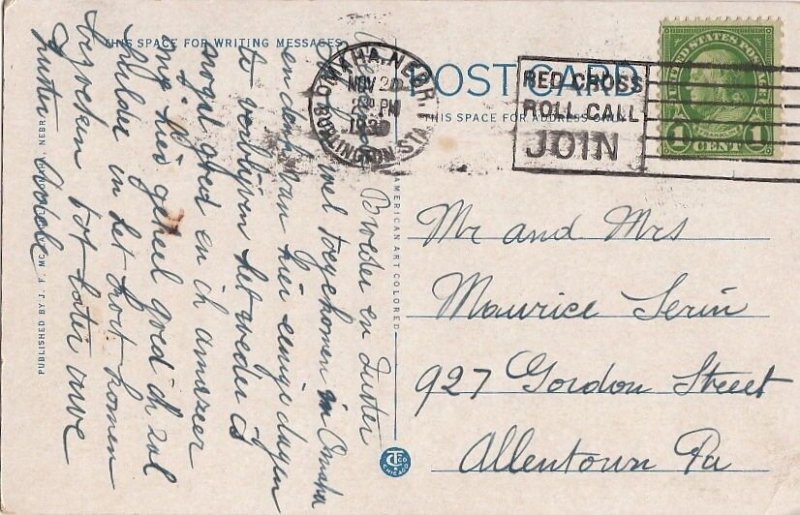 THIS SPACE FOR WRITING MESSAGES
POST CARD
THIS SPACE FOR ADDRESS ONLY
OMAHA, NEBR.
NOV 2
PM
BURLINGTON STA.
RED CROSS
ROLL CALL
JOIN
UNITED STATES POSTAGE
FRANKLIN
1 CENT 1
Mr and Mrs
Maurice Serin
927 Gordon Street
Allentown Pa
Broeder en Zuster
wel toegekomen in Omaha
en denk van hier eenige dagen
te verblijven het weder is
nogal goed en ik amazeer
my hier geheel goed ik zal
hulder in het kort komen
bezoeken tot later uwe
zuster
PUBLISHED BY J. F. NEBR
AMERICAN ART COLORED
CT CO
CHICAGO